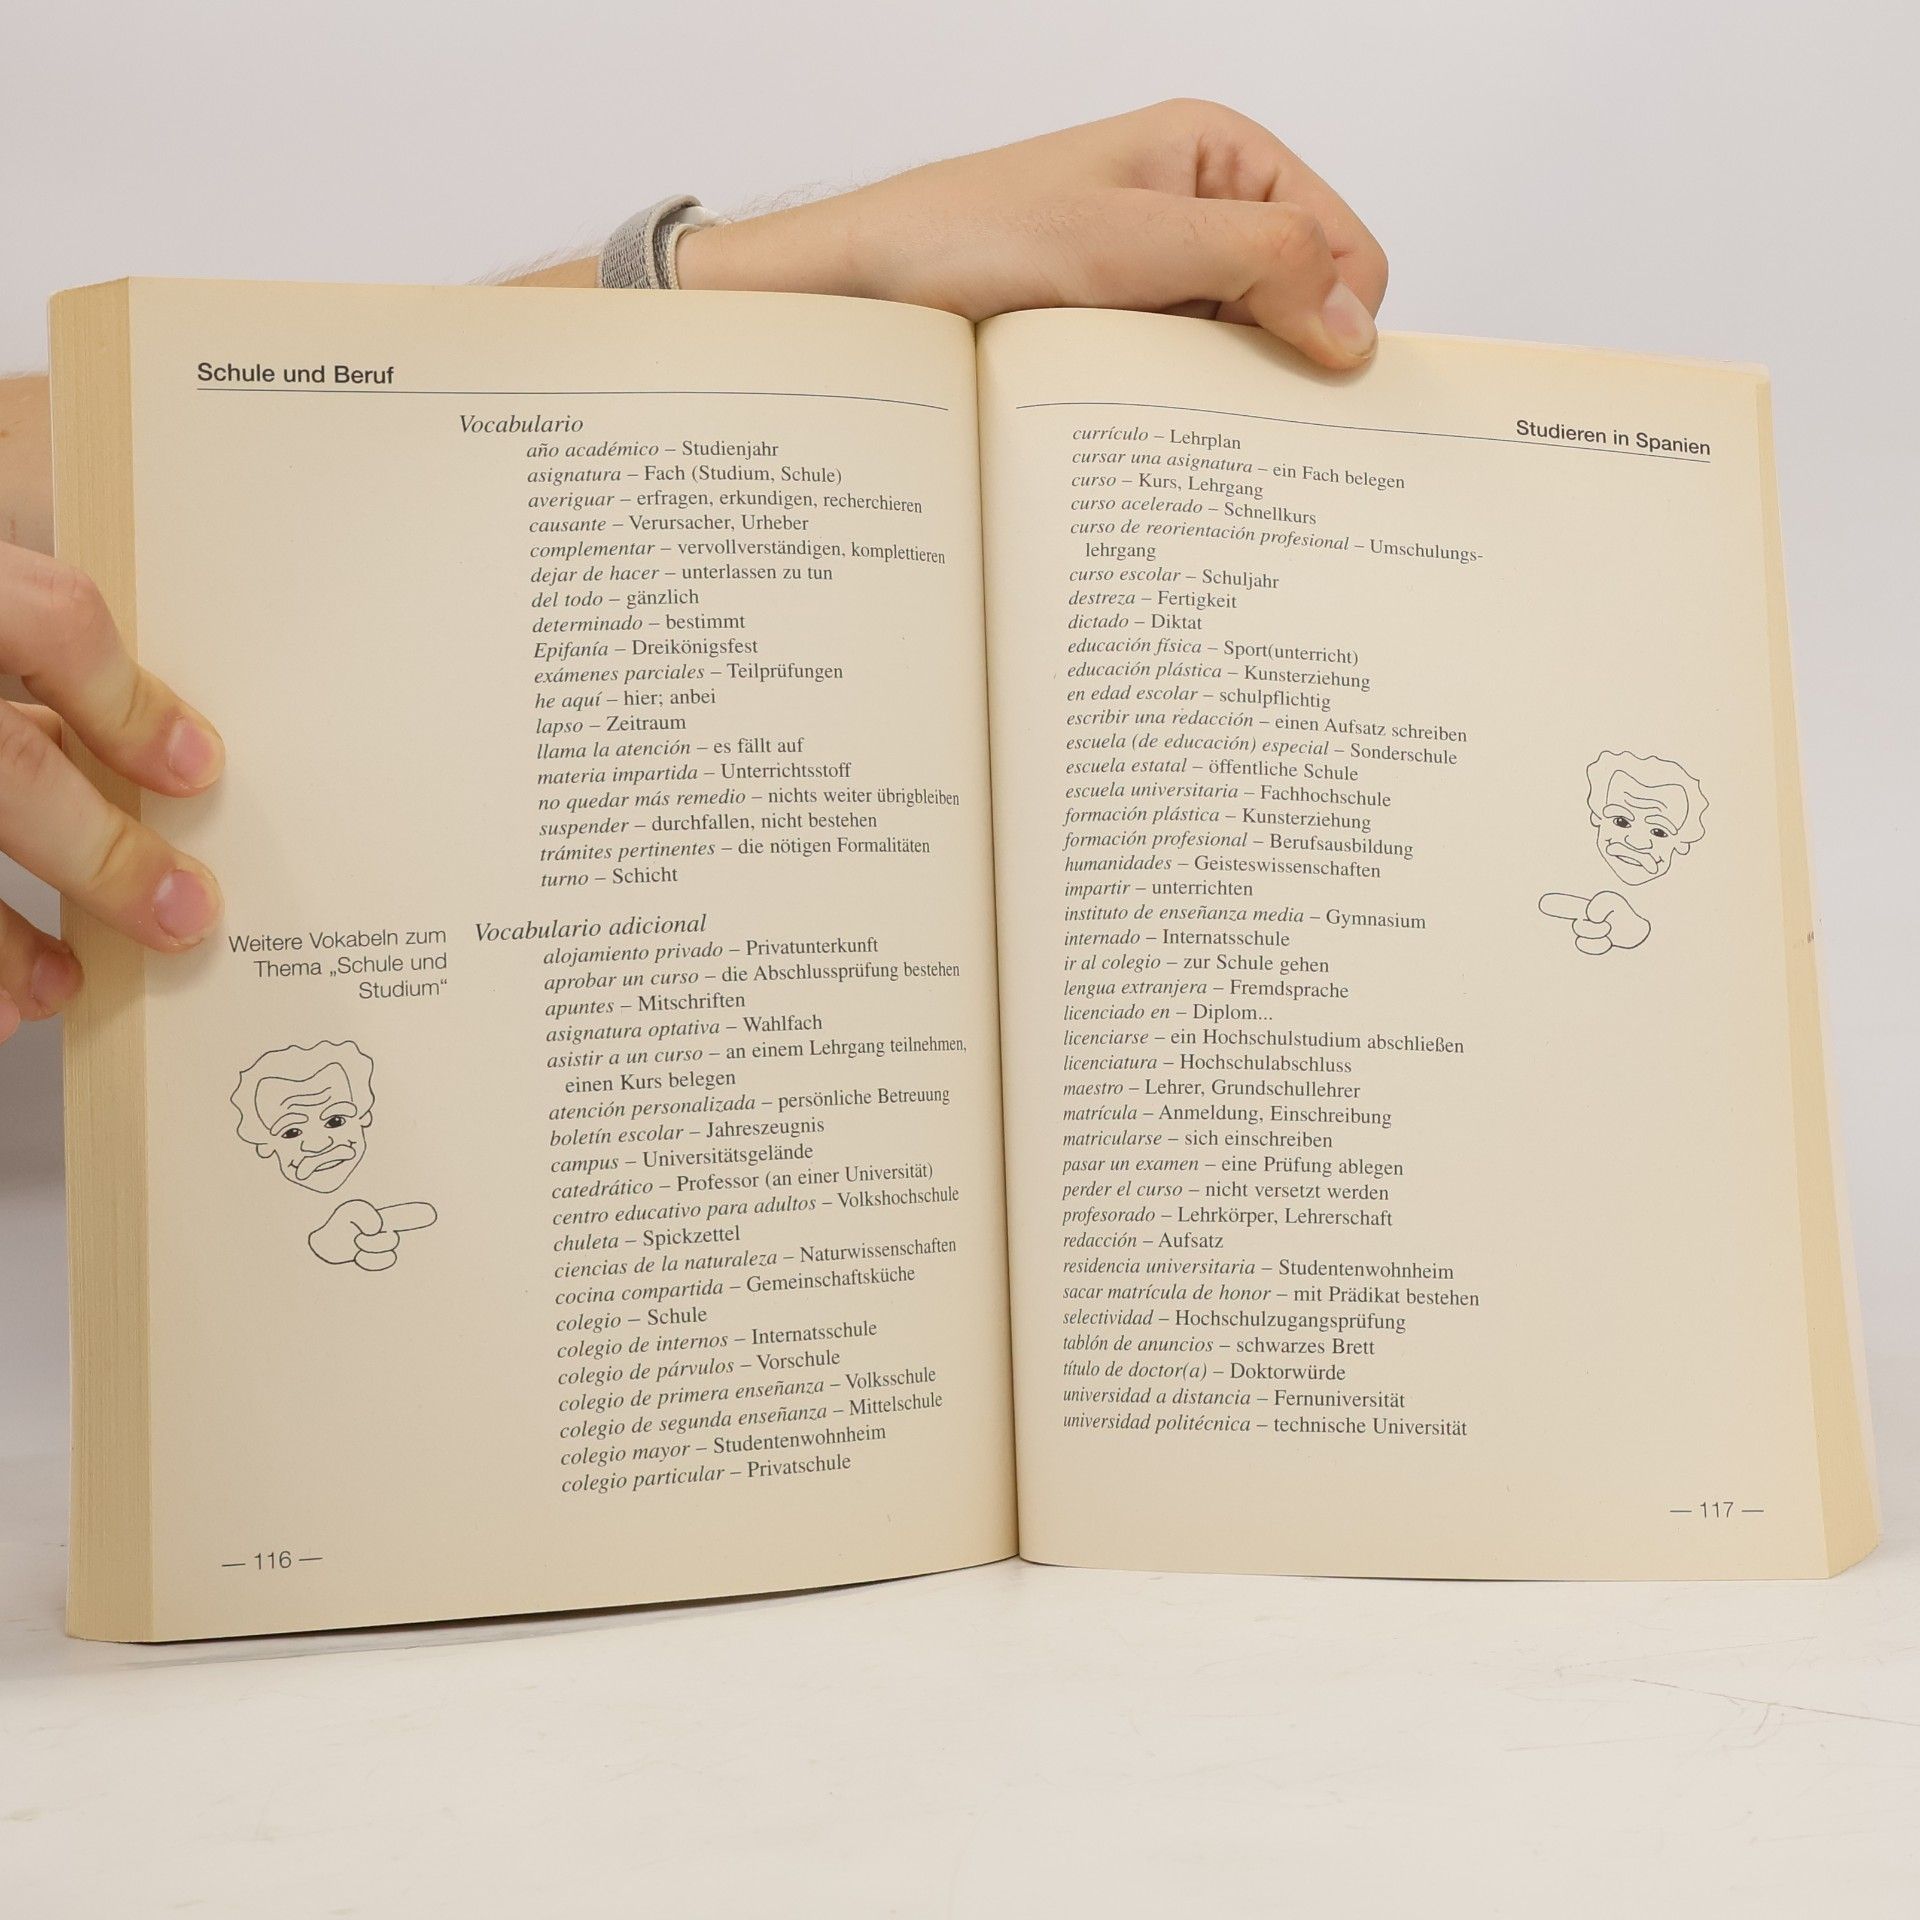 Schule und Beruf
Vocabulario
año académico – Studienjahr
asignatura – Fach (Studium, Schule)
averiguar – erfragen, erkundigen, recherchieren
causante – Verursacher, Urheber
complementar – vervollverständigen, komplettieren
dejar de hacer – unterlassen zu tun
del todo – gänzlich
determinado – bestimmt
Epifanía – Dreikönigsfest
exámenes parciales – Teilprüfungen
he aquí – hier; anbei
lapso – Zeitraum
llama la atención – es fällt auf
materia impartida – Unterrichtsstoff
no quedar más remedio – nichts weiter übrigbleiben
suspender – durchfallen, nicht bestehen
trámites pertinentes – die nötigen Formalitäten
turno – Schicht
Weitere Vokabeln zum
Thema „Schule und
Studium“
Vocabulario adicional
alojamiento privado – Privatunterkunft
aprobar un curso – die Abschlussprüfung bestehen
apuntes – Mitschriften
asignatura optativa – Wahlfach
asistir a un curso – an einem Lehrgang teilnehmen,
einen Kurs belegen
atención personalizada – persönliche Betreuung
boletín escolar – Jahreszeugnis
campus – Universitätsgelände
catedrático – Professor (an einer Universität)
centro educativo para adultos – Volkshochschule
chuleta – Spickzettel
ciencias de la naturaleza – Naturwissenschaften
cocina compartida – Gemeinschaftsküche
colegio – Schule
colegio de internos – Internatsschule
colegio de párvulos – Vorschule
colegio de primera enseñanza – Volksschule
colegio de segunda enseñanza – Mittelschule
colegio mayor – Studentenwohnheim
colegio particular – Privatschule
— 116 —
Studieren in Spanien
currículo – Lehrplan
cursar una asignatura – ein Fach belegen
curso – Kurs, Lehrgang
curso acelerado – Schnellkurs
curso de reorientación profesional – Umschulungs-
lehrgang
curso escolar – Schuljahr
destreza – Fertigkeit
dictado – Diktat
educación física – Sport(unterricht)
educación plástica – Kunsterziehung
en edad escolar – schulpflichtig
escribir una redacción – einen Aufsatz schreiben
escuela (de educación) especial – Sonderschule
escuela estatal – öffentliche Schule
escuela universitaria – Fachhochschule
formación plástica – Kunsterziehung
formación profesional – Berufsausbildung
humanidades – Geisteswissenschaften
impartir – unterrichten
instituto de enseñanza media – Gymnasium
internado – Internatsschule
ir al colegio – zur Schule gehen
lengua extranjera – Fremdsprache
licenciado en – Diplom...
licenciarse – ein Hochschulstudium abschließen
licenciatura – Hochschulabschluss
maestro – Lehrer, Grundschullehrer
matrícula – Anmeldung, Einschreibung
matricularse – sich einschreiben
pasar un examen – eine Prüfung ablegen
perder el curso – nicht versetzt werden
profesorado – Lehrkörper, Lehrerschaft
redacción – Aufsatz
residencia universitaria – Studentenwohnheim
sacar matrícula de honor – mit Prädikat bestehen
selectividad – Hochschulzugangsprüfung
tablón de anuncios – schwarzes Brett
título de doctor(a) – Doktorwürde
universidad a distancia – Fernuniversität
universidad politécnica – technische Universität
— 117 —